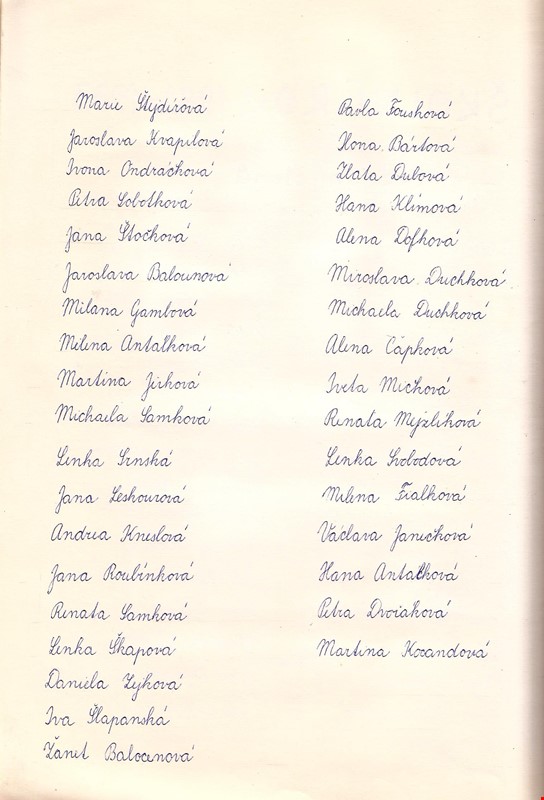 Marie Štejdířová
Jaroslava Kvapilová
Ivona Ondráčková
Petra Sobotková
Jana Štočková
Jaroslava Balounová
Milana Gambová
Milena Antalková
Martina Jirková
Michaela Samková
Lenka Srnská
Jana Leskourová
Andrea Kneslová
Jana Roubínková
Renata Samková
Lenka Škapová
Daniela Zejková
Iva Šlapanská
Žanet Balounová
Pavla Foushová
Ilona Bártová
Zlata Dubová
Hana Klímová
Alena Dofková
Miroslava Duchková
Michaela Duchková
Alena Čapková
Iveta Micková
Renata Mejzlíková
Lenka Svobodová
Milena Fialková
Václava Janíčková
Hana Antalková
Petra Dvořáková
Martina Kozandová